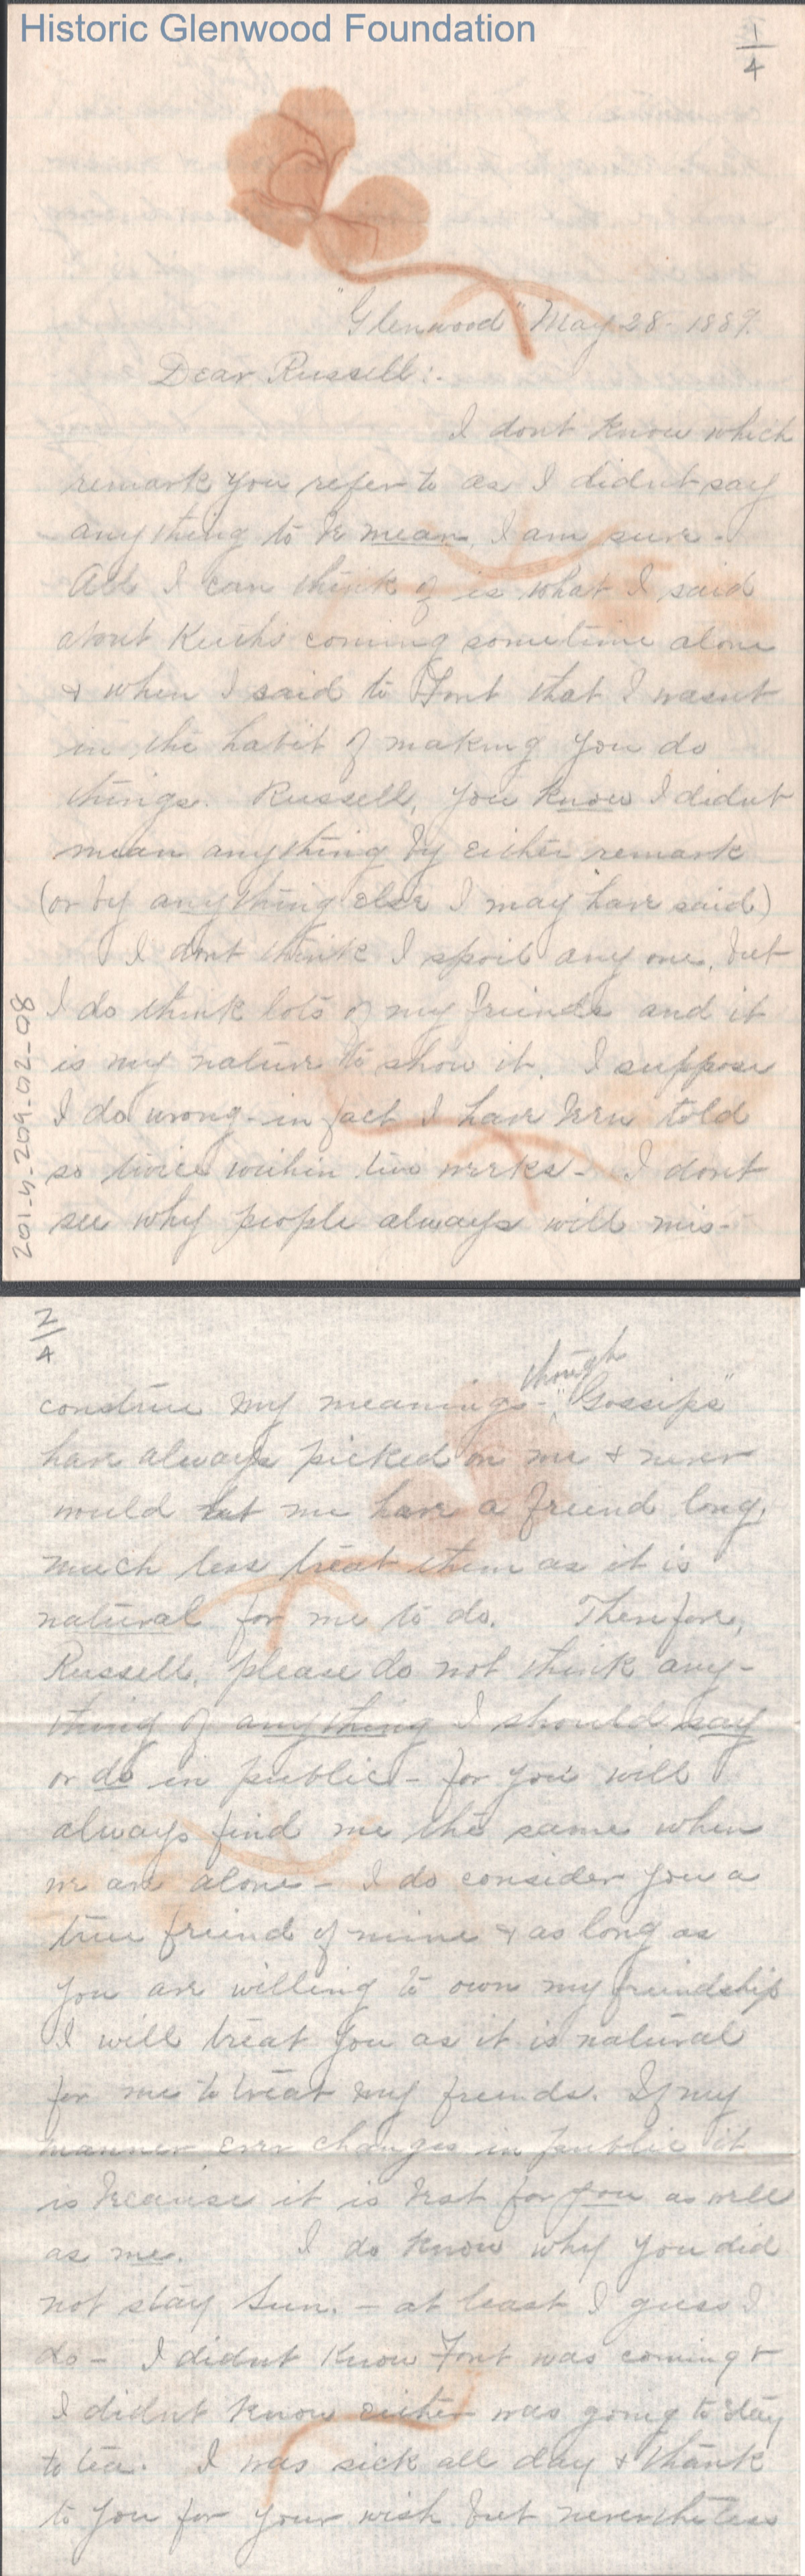 Historic Glenwood Foundation
1/4
"Glenwood" May 28- 1889.
Dear Russell:-
I dont know which
remark you refer to as I didnt say
anything to be mean, I am sure -
All I can think of is what I said
about Keith's coming sometime alone
& when I said to Font that I wasnt
in the habit of making you do
things. Russell, you know I didnt
mean anything by either remark
(or by anything else I may have said)
I dont think I spoil any one, but
I do think lots of my friends and it
is my nature to show it. I suppose
I do wrong - in fact I have been told
so twice within two weeks - I dont
see why people always will mis-
201-4-209-02-08
2/4
construe my meanings - though "Gossips"
have always picked on me & never
would let me have a friend long,
much less treat them as it is
natural for me to do. Therefore,
Russell, please do not think any-
thing of anything I should say
or do in public - for you will
always find me the same when
we are alone - I do consider you a
true friend of mine & as long as
you are willing to own my friendship
I will treat you as it is natural
for me to treat my friends. If my
manner ever changes in public it
is because it is best for you as well
as me. I do know why you did
not stay Sun. - at least I guess I
do - I didnt know Font was coming &
I didnt know either was going to stay
to tea. I was sick all day & thank
to you for your wish but nevertheless